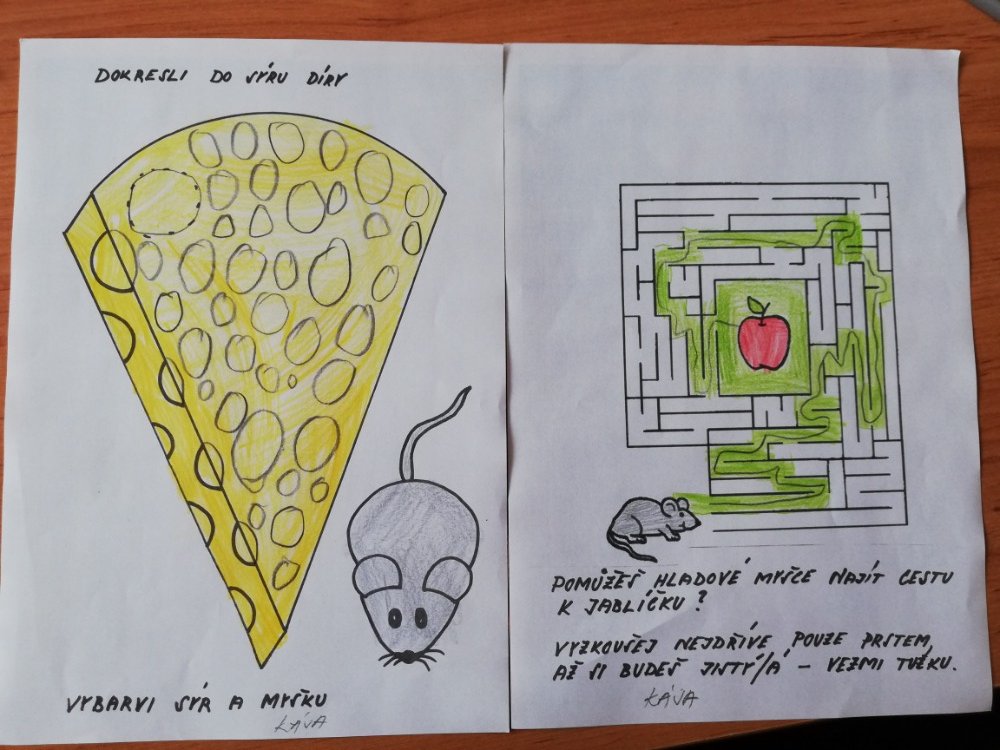 DOKRESLI DO SÝRU DÍRY
VYBARVI SÝR A MYŠKU
KÁJA
POMŮŽEŠ HLADOVÉ MYŠCE NAJÍT CESTU
K JABLÍČKU?
VYZKOUŠEJ NEJDŘÍVE POUZE PRSTEM,
AŽ SI BUDEŠ JISTÝ/Á – VEZMI TUŽKU.
KÁJA